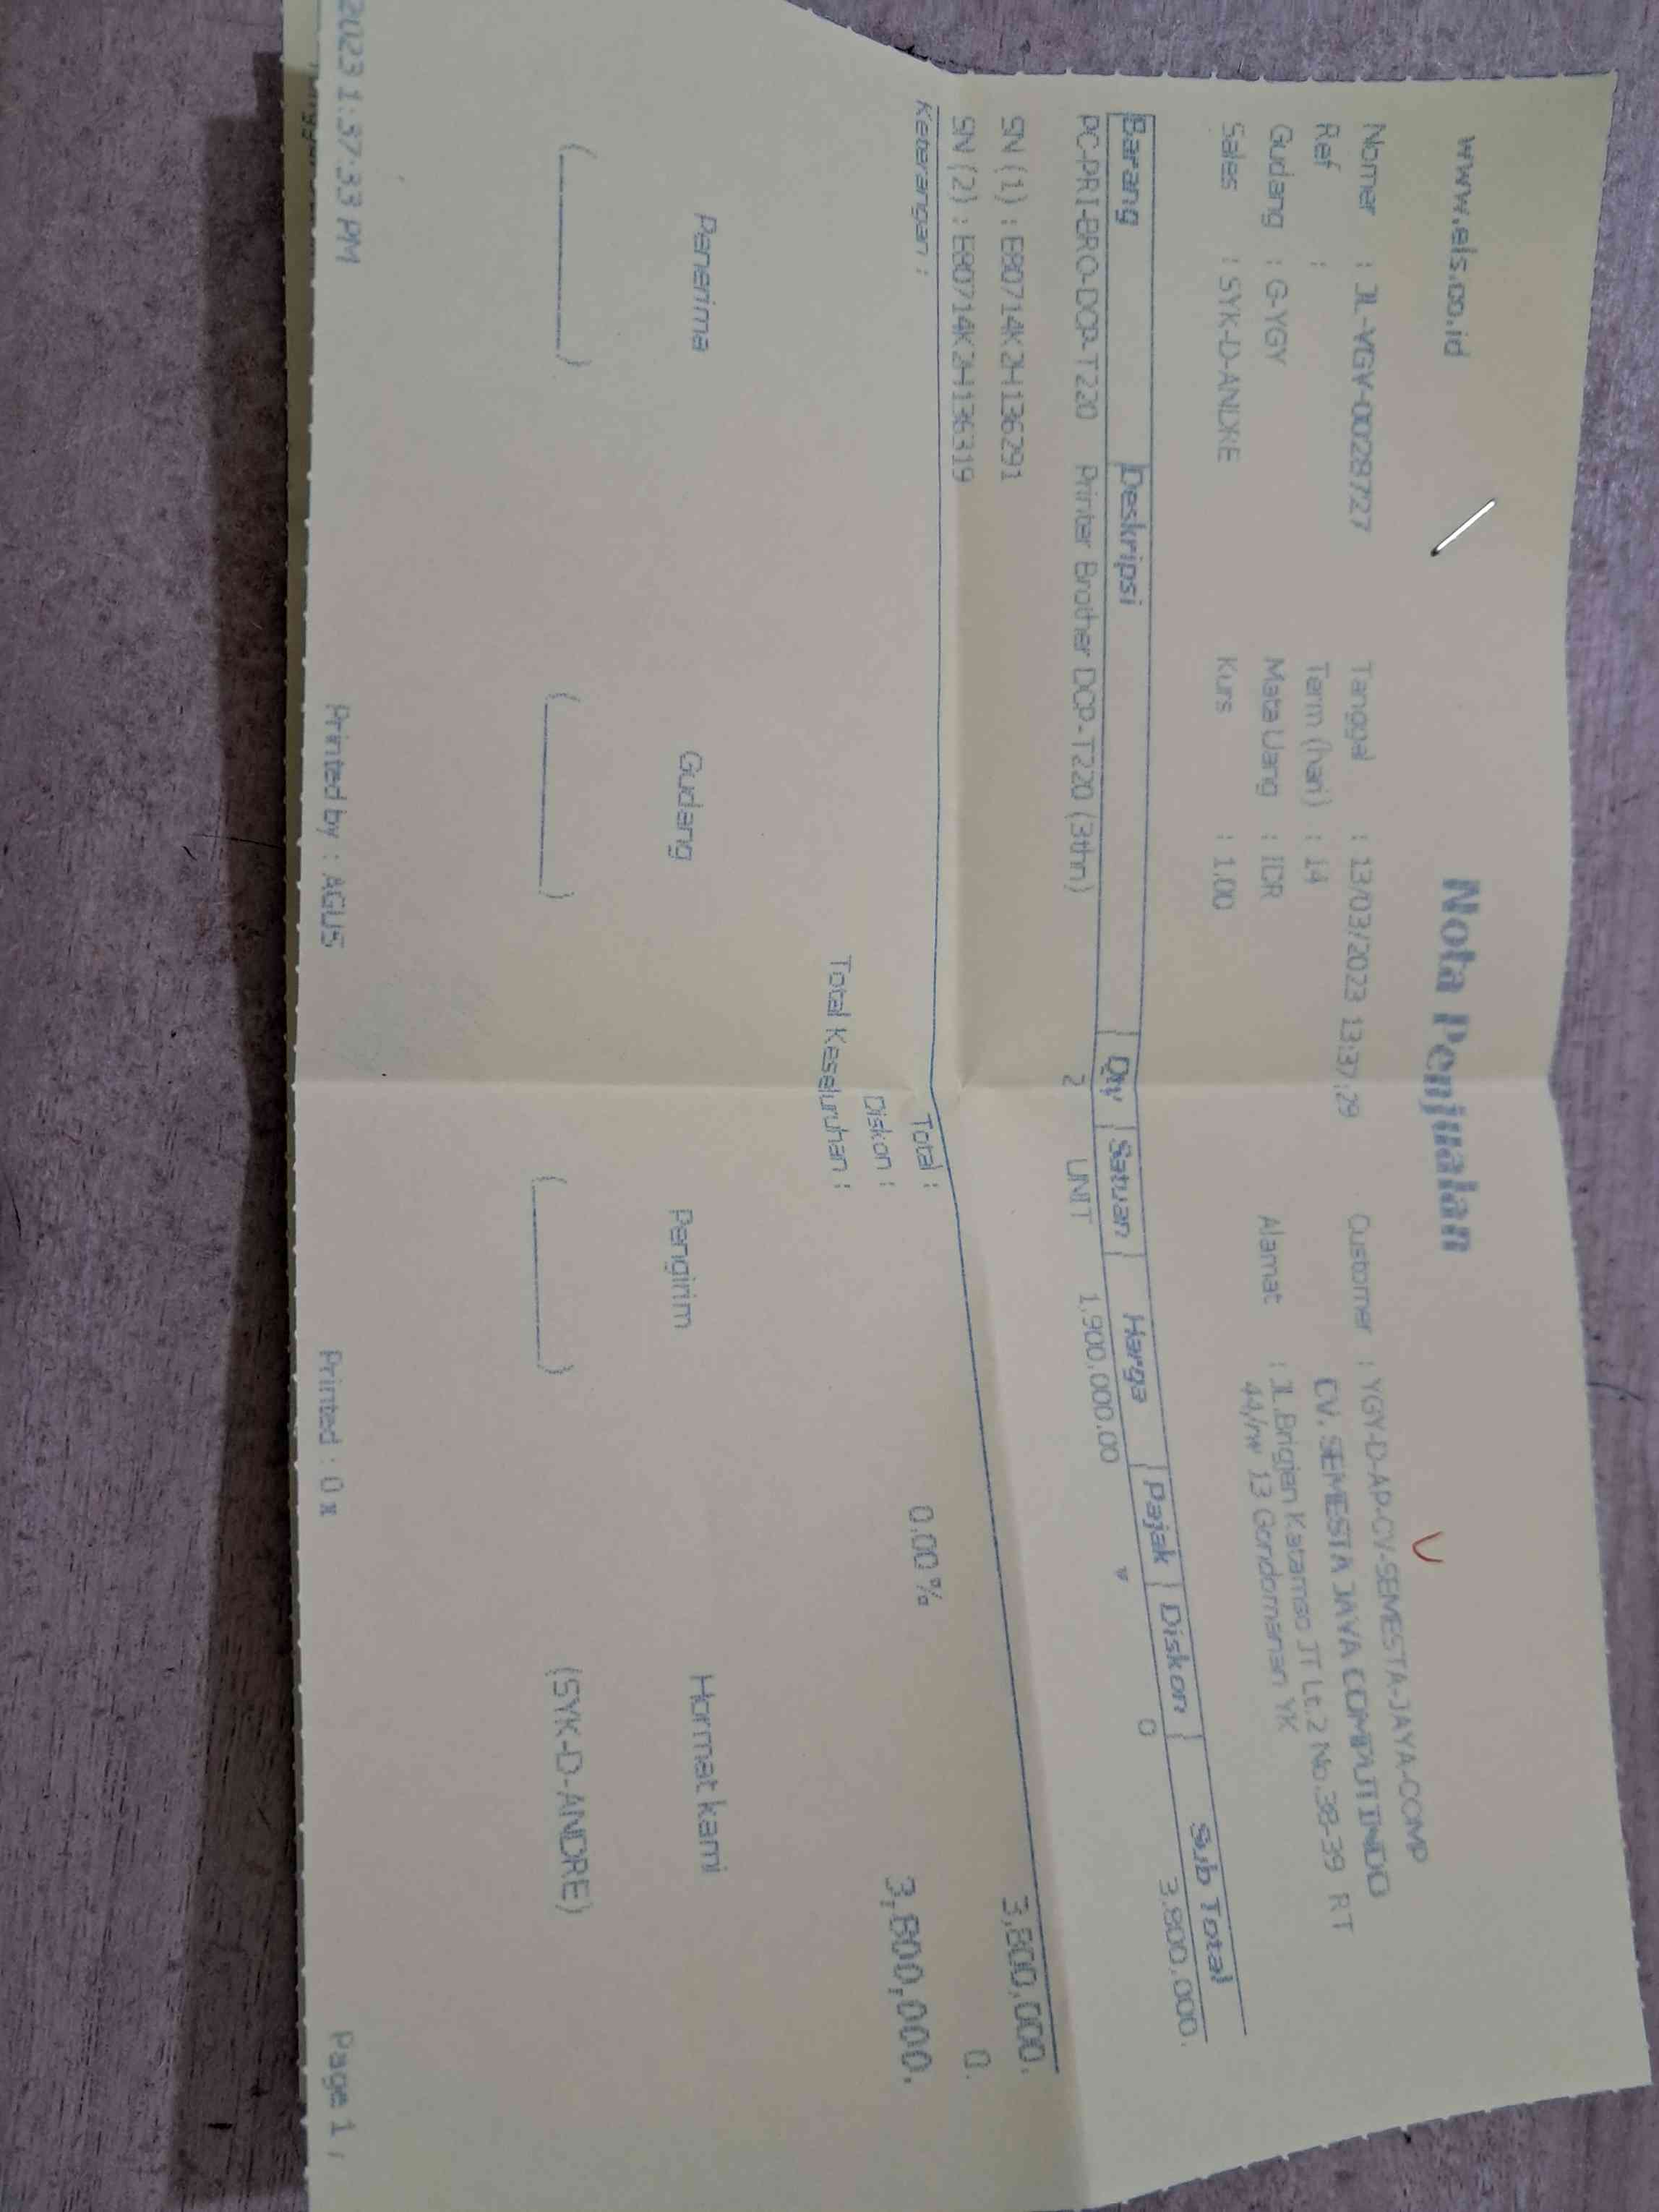 www.els.co.id
Nota Penjualan
Nomer : JL-YGY-0028727 Tanggal : 13/03/2023 13:37:29 Customer : YGY-D-AP-CV-SEMESTA-JAYA-COMP
Ref : Term (hari) : 14 CV. SEMESTA JAYA COMPUTINDO
Gudang : G-YGY Mata Uang : IDR Alamat : JL.Brigjen Katamso JT Lt.2 No.38-39 RT
Sales : SYK-D-ANDRE Kurs : 1.00 44/rw 13 Gondomanan YK
Barang Deskripsi Qty Satuan Harga Pajak Diskon Sub Total
PC-PRI-BRO-DCP-T220 Printer Brother DCP-T220 (3thn) 2 UNIT 1,900,000.00 0 3,800,000.
SN (1) : E80714K2H136291
SN (2) : E80714K2H136319
Keterangan : Total : 3,800,000.
Diskon : 0.00 % 0.
Total Keseluruhan : 3,800,000.
Penerima Gudang Pengirim Hormat kami
(__________) (__________) (__________) (SYK-D-ANDRE)
2023 1:37:33 PM Printed by : AGUS Printed : 0 x Page 1 /